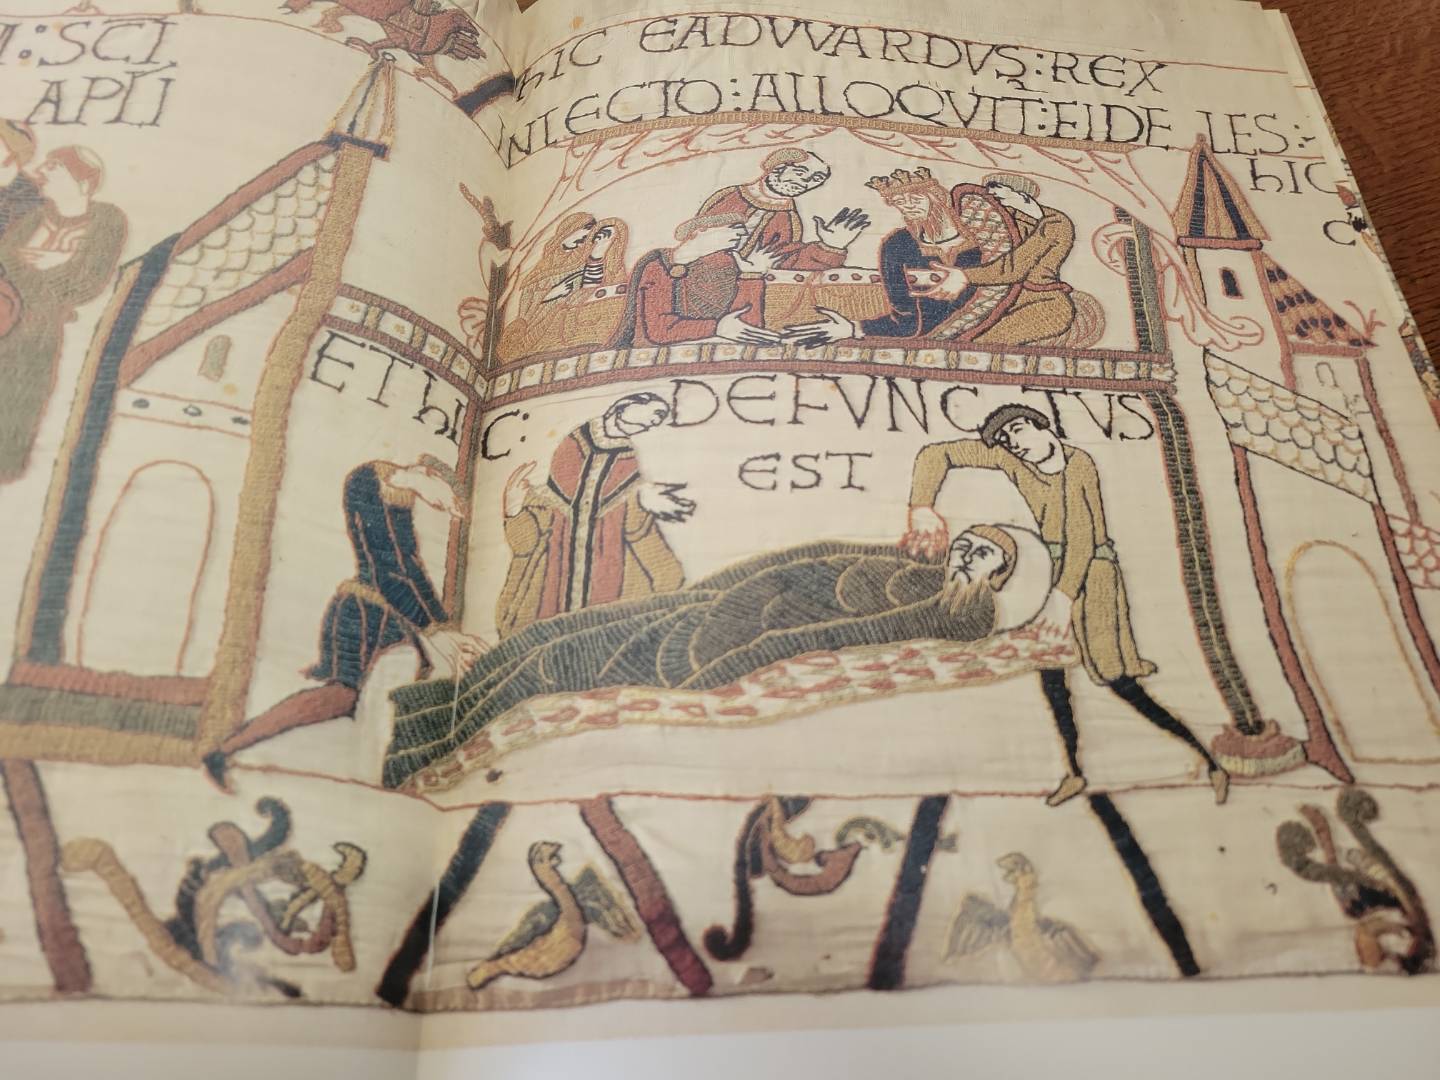 : SCI
APLI
hIC EADVVARDVS : REX
IN LECTO : ALLOQVIT : FIDELES :
hIC
ET hIC : DEFVNCTUS
EST